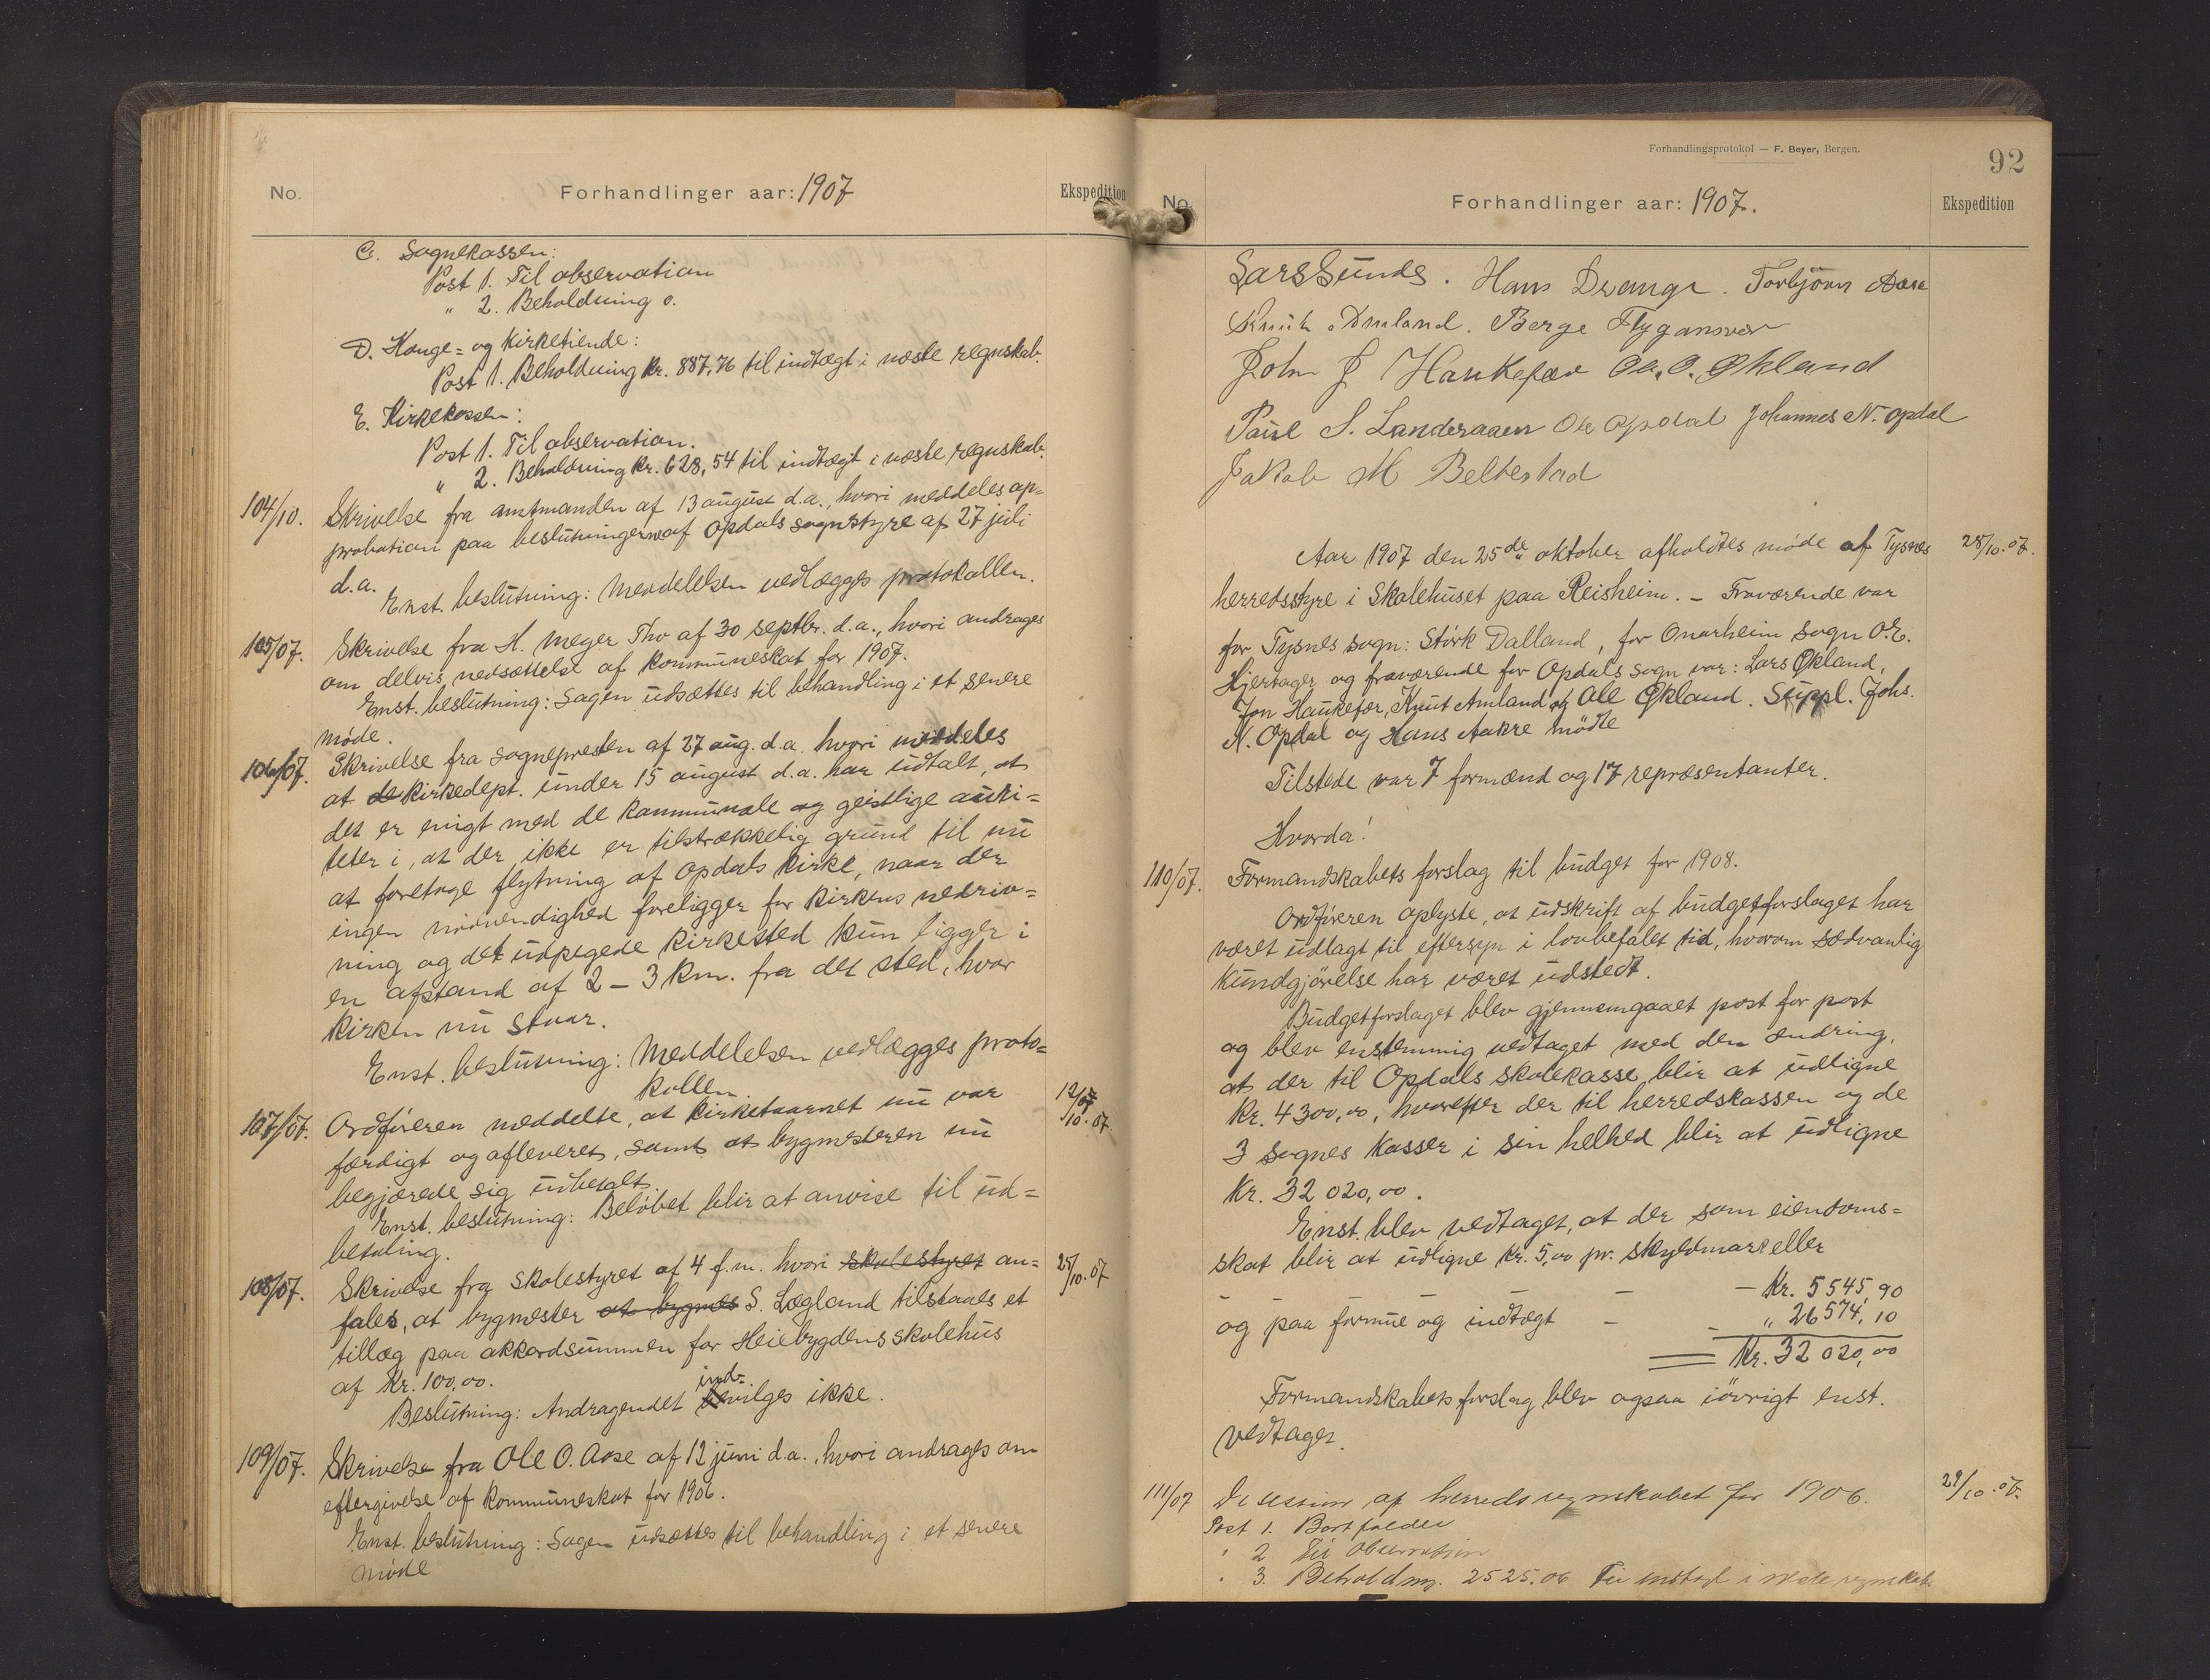 No.
Forhandlinger aar: 1907
Ekspedition
C. Sognekassen:
Post 1. Til observation
" 2. Beholdning 0.
D. Konge= og Kirketiende:
Post 1. Beholdning Kr. 887,76 til indtægt i næste regnskab.
E. Kirkekassen:
Post 1. Til observation.
" 2. Beholdning Kr. 628,54 til indtægt i næste regnskab.
104/10. Skrivelse fra amtmanden af 13 august d.a., hvori meddeles ap=
probation paa beslutningerne af Opdals sognstyre af 27 juli
d.a.
Enst. beslutning: Meddelelsen vedlægges protokollen.
105/07. Skrivelse fra H. Meyer Tho af 30 septbr. d.a., hvori andrages
om delvis nedsættelse af kommuneskat for 1907.
Enst. beslutning: Sagen udsættes til behandling i et senere
møde.
106/07. Skrivelse fra sognepresten af 27 aug. d.a. hvori meddeles
at de kirkedept. under 15 august d.a. har udtalt, at
det er enigt med de kommunale og geistlige auti=
teter i, at der ikke er tilstrækkelig grund til nu
at foretage flytning af Opdals kirke, naar der
ingen nødvendighed foreligger for kirkens nedriv=
ning og det udpegede kirkested kun ligger i
en afstand af 2 – 3 km. fra det sted, hvor
kirken nu staar.
Enst. beslutning: Meddelelsen vedlægges proto=
kollen.
107/07. Ordføreren meddelte, at kirketaarnet nu var
12/10.07.
færdigt og afleveret, samt at bygmesteren nu
begjærede sig udbetalt.
Enst. beslutning: Beløbet blir at anvise til ud=
betaling.
108/07. Skrivelse fra skolestyret af 4 f.m. hvori skolestyret an=
25/10.07
fales, at bygmester at bygmes S. Lægland tilstaaes et
tillæg paa akkordsummen for Heiebygdens skolehus
af Kr. 100,00.
ind=
Beslutning: Andragendet bevilges ikke.
109/07. Skrivelse fra Ole O. Aase af 12 juni d.a., hvori andrages om
eftergivelse af kommuneskat for 1906.
Enst. beslutning: Sagen udsættes til behandling i et senere
møde
Forhandlingsprotokol — F. Beyer, Bergen.
92
No.
Forhandlinger aar: 1907.
Ekspedition
Lars Sunde. Hans Drange. Torbjørn Aase
Knut Amland. Berge Flygansvær
John J Haukefær Ole. O. Økland
Paul S. Landeraaen Ole Opdal Johannes N. Opdal
Jakob M Beltestad
Aar 1907 den 25de oktober afholdtes møde af Tysnes
28/10.07.
herredsstyre i Skolehuset paa Reisheim. – Fraværende var
for Tysnes sogn: Størk Dalland, for Onarheim sogn O. E.
Hjertager og fraværende for Opdals sogn var: Lars Økland,
Jon Haukefær, Knut Amland og Ole Økland. Suppl. Johs.
N. Opdal og Hans Aakre mødte
Tilstede var 7 formænd og 17 repræsentanter.
Hvorda!
110/07. Formandskabets forslag til budget for 1908.
Ordføreren oplyste, at udskrift af budgetforslaget har
været udlagt til eftersyn i lovbefalet tid, hvorom sædvanlig
kundgjørelse har været udstedt.
Budgetforslaget blev gjennemgaaet post for post
og blev enstemmig vedtaget med den ændring,
at der til Opdals skolekasse blir at udligne
Kr. 4300,00, hvorefter der til herredskassen og de
3 sognes kasser i sin helhed blir at udligne
Kr. 32 020,00.
Enst. blev vedtaget, at der som eiendoms=
skat blir at udligne Kr. 5,00 pr. skyldmark eller
– – Kr. 5545,90
og paa formue og indtægt – – " 26574,10
Kr. 32 020,00
Formandskabets forslag blev ogsaa iøvrigt enst.
vedtaget.
111/07 Desission af herredsregnskabet for 1906.
29/10.07.
Post 1. Bortfalder
" 2 Til Observation
" 3. Beholdning. 2525.06 Til indtægt i næste regnskab